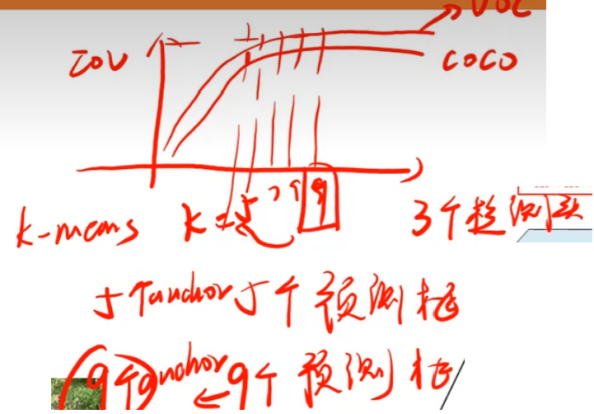 VOC
IOU
COCO
k-means k=5 7 9 9 3个检测头
5个anchor 5个预测框
9个anchor ← 9个预测框